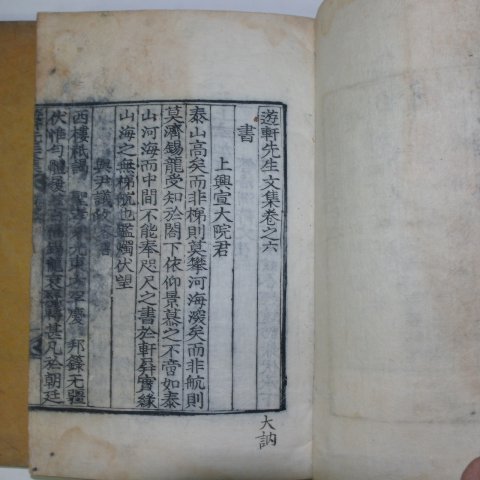 遊軒先生文集卷之六
書
上興宣大院君
泰山高矣而非梯則莫攀河海深矣而非航則
莫濟錫龍受知於閤下依仰景慕之不啻如泰
山河海而中間不能奉咫尺之書於軒屛實緣
山海之無梯航也鑑燭伏望
與尹議政
西樓祗謁 慶 邦籙无疆
伏惟勻體 錫龍衰 甚凡於朝廷
大訥